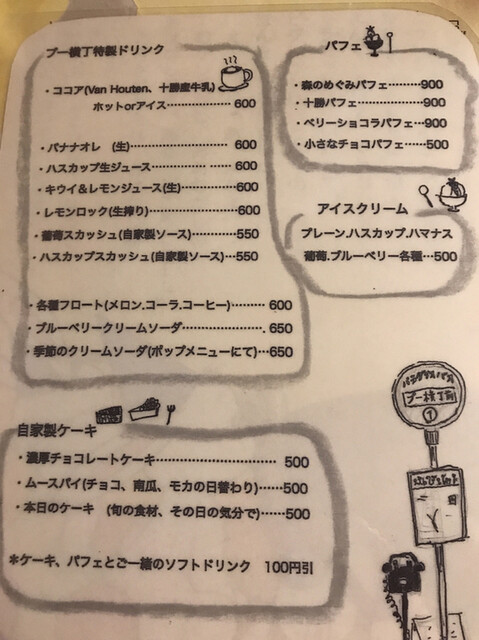 プー横丁特製ドリンク
・ココア(Van Houten、十勝産牛乳)
ホットorアイス………………600
・バナナオレ (生)………………600
・ハスカップ生ジュース…………600
・キウイ&レモンジュース(生)………600
・レモンロック(生搾り)……………600
・葡萄スカッシュ(自家製ソース)……550
・ハスカップスカッシュ(自家製ソース)…550
・各種フロート(メロン.コーラ.コーヒー)………600
・ブルーベリークリームソーダ……………650
・季節のクリームソーダ(ポップメニューにて)…650
パフェ
・森のめぐみパフェ……900
・十勝パフェ……………900
・ベリーショコラパフェ…900
・小さなチョコパフェ……500
アイスクリーム
プレーン.ハスカップ.ハマナス
葡萄.ブルーベリー各種…500
自家製ケーキ
・濃厚チョコレートケーキ……………………500
・ムースパイ(チョコ、南瓜、モカの日替わり)……500
・本日のケーキ (旬の食材、その日の気分で)……500
*ケーキ、パフェとご一緒のソフトドリンク 100円引
プー横丁前
①